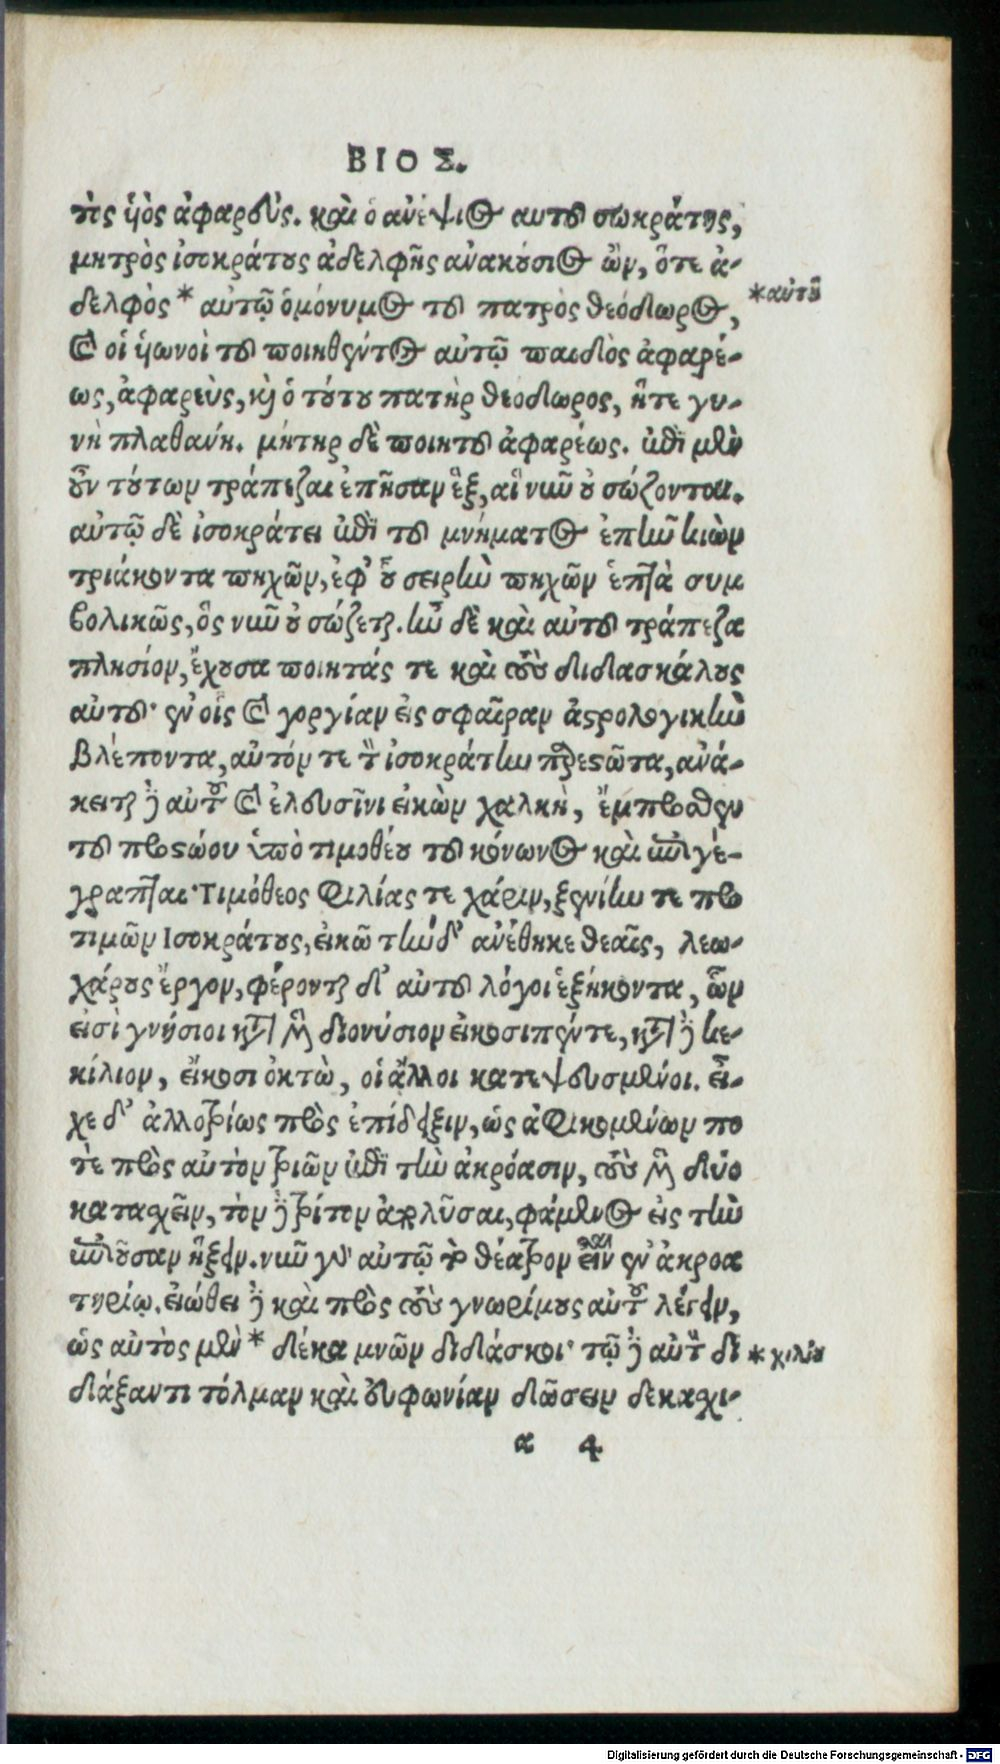 ΒΙΟΣ.
τὴς ὑὸς ἀφαρεύς. καὶ ὁ ἀνέψιος αυτοῦ σωκράτης,
μητρὸς ἰσοκράτους ἀδελφῆς ἀνακούσιος ὢν, ὅτε ἀ-
δελφὸς * αὐτῷ ὁμόνυμος τοῦ πατρὸς θεόδωρος,
*αὐτοῦ
καὶ οἱ ὑωνοὶ τοῦ ποιηθέντος αὐτῷ παιδὸς ἀφαρέ-
ως, ἀφαρεὺς, καὶ ὁ τούτου πατὴρ θεοδωρος, ἥτε γυ-
νὴ πλαθανή. μήτηρ δὲ ποιητοῦ ἀφαρέως. ἐπὶ μὲν
οὖν τούτων τράπεζαι ἐπῆσαν ἓξ, αἳ νῦν οὐ σώζονται.
αὐτῷ δὲ ἰσοκράτει ἐπὶ τοῦ μνήματος ἐπῆν κιὼν
τριάκοντα πηχῶν, ἐφ' οὗ σειρὴν πηχῶν ἑπτὰ συμ
βολικῶς, ὃς νῦν οὐ σώζεται. ἦν δὲ καὶ αὐτοῦ τράπεζα
πλησίον, ἔχουσα ποιητάς τε καὶ τοὺς διδασκάλους
αὐτοῦ· ἐν οἷς καὶ γοργίαν εἰς σφαῖραν ἀστρολογικὴν
βλέποντα, αὐτόν τε τὸν ἰσοκράτην παρεστῶτα, ἀνά-
κειται δὲ αὐτοῦ καὶ ἐλευσῖνι εἰκὼν χαλκὴ, ἔμπροσθεν
τοῦ προστώου ὑπὸ τιμοθέου τοῦ κόνωνος καὶ ἐπιγέ-
γραπται· Τιμόθεος φιλίας τε χάριν, ξενίην τε προ
τιμῶν Ισοκράτους, εἰκῶ τὴν δ' ἀνέθηκε θεαῖς, λεω-
χάρους ἔργον, φέρονται δ' αὐτοῦ λόγοι ἑξήκοντα, ὧν
εἰσὶ γνήσιοι κατὰ μὲν διονύσιον εἰκοσιπέντε, κατὰ δὲ κε-
κίλιον, εἴκοσι ὀκτὼ, οἱ ἄλλοι κατεψευσμένοι. εἶ-
χε δ' ἀλλοτρίως πρὸς ἐπίδειξιν, ὡς ἀφικομένων πο
τὲ πρὸς αὐτὸν τριῶν ἐπὶ τὴν ἀκρόασιν, τοὺς μὲν δύο
κατασχεῖν, τὸν δὲ τρίτον ἀπολῦσαι, φάμενος εἰς τὴν
ἐπιοῦσαν ἥξειν. νῦν γὰρ αὐτῷ τὸ θέατρον εἶναι ἐν ἀκροα
τηρίῳ. εἰώθει δὲ καὶ πρὸς τοὺς γνωρίμους αὐτοῦ λέγειν,
ὡς αὐτὸς μὲν * δέκα μνῶν διδάσκοι· τῷ δὲ αὐτὸν δι
* χιλίου
διάξαντι τόλμαν καὶ εὐφωνίαν δώσειν δεκαχι-
α 4
Digitalisierung gefördert durch die Deutsche Forschungsgemeinschaft - DFG